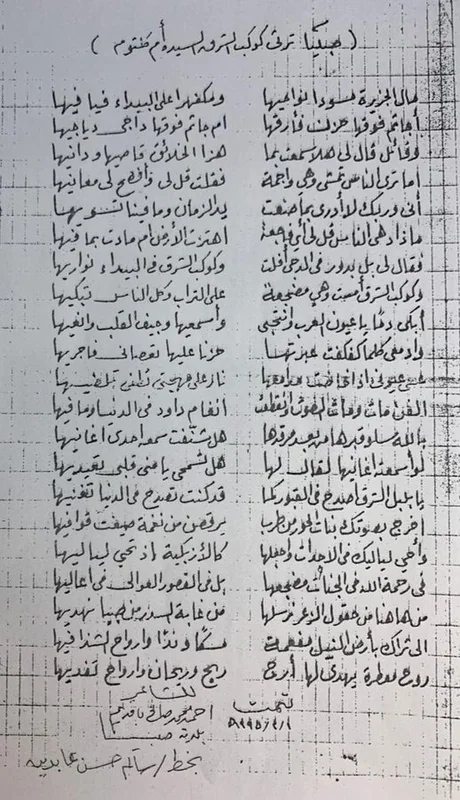 ( صبيا ترثى كوكب الشرق السيدة أم كلثوم )
مال الجزيرة مسودا نواحيها ومكفهرا على البيداء فيافيها
أجاثم فوقها حزنك فأرقها أم جاثم فوقها داجى دياجيها
وقائل قال لى هلا سمعت بما هذا الخلائق قاصيها ودانيها
اما ترى الناس تمشى وهى واجمة فقلت قل لى وأفصح لى معانيها
أنى وربك لا أدرى بما صنعت يد الزمان وما فينا
ماذا دهى الناس قل لى أي فاجعة اهتزت الأرض أم مادت بما فيها
فقال لى بل بدور فى الدجى أفلت وكوكب الشرق فى البيداء نواريها
وكوكب الشرق أمست وهى مضجعة على التراب وكل الناس تبكيها
أبكى دمًا يا عيون العرب وانتحبى وأسمعيها وجيف القلب
وادمعى كلما كفكفت عبرتها حزنا عليها تعصانى
عينى اذا نار على مهجتى
الفن مات ومات الصوت وانقطعت أنغام داود فى الدنيا وما فيها
بالله سلو قبرها من بعد مرقدها هل شنفت سمعه احدى أغانيها
لو أسمعته اغانيها لقال لها هل تسمحى يا منى قلبى
يا بلبل الشرق اصدح فى القبور كما قد كنت تصدح فى الدنيا
اخرج بصوتك بنات الحور من طرب يرقصن من نغمة صيغت قوافيها
وأحى لياليك فى الاجداث واجعلها كالأزبكية اذ تحيى لياليها
فى رحمة الله فى الجنات مضجعها بل فى القصور العوالى فى أعاليها
من هاهنا من حقول نرسلها من غابة السدر من صبيا نهديها
الى ثراك بأرض النيل مسكًا وندًا وأرواح الشذا فيها
روح معطرة يهدى لها أرج ريح وريحان وأرواح تفديها
تمت للشاعر
أحمد محمد صادق
بلدية صبيا
بخط / سالم حسن عابدين